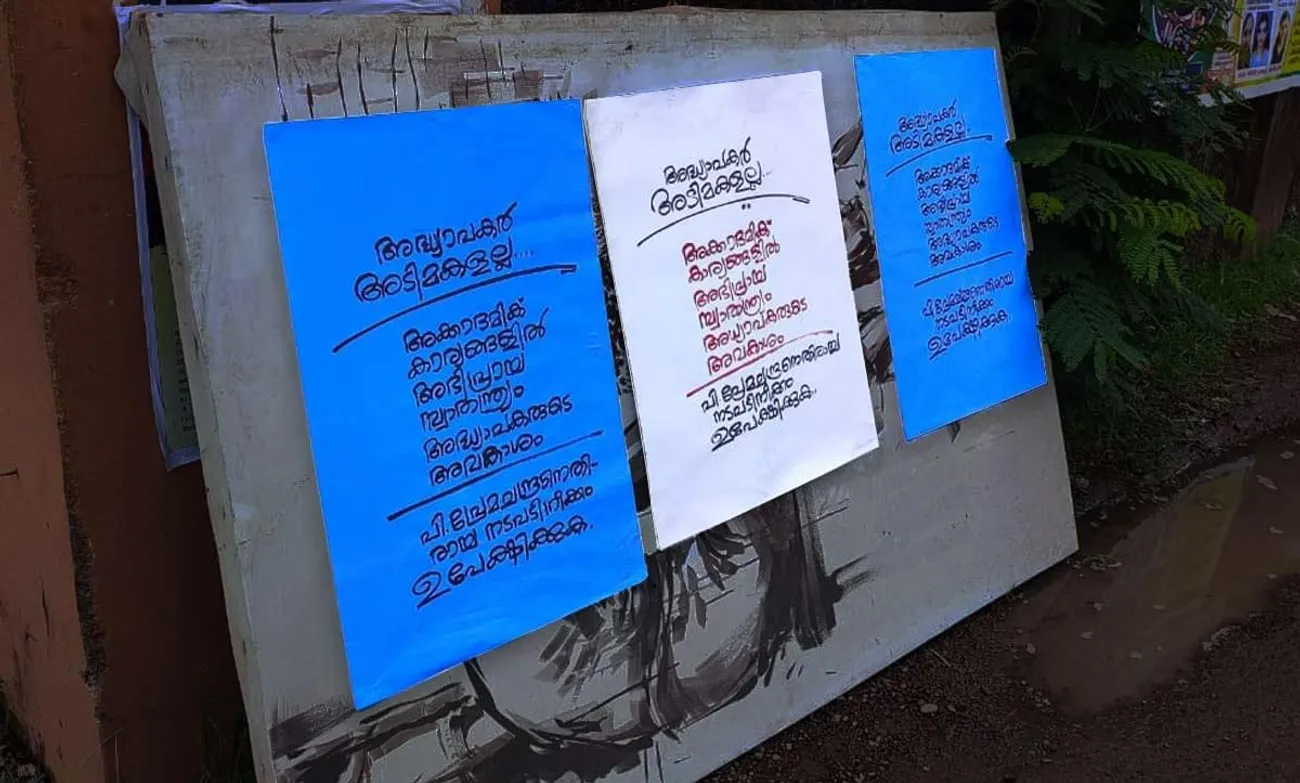 അദ്ധ്യാപകർ
അടിമകളല്ല....
അക്കാദമിക്
കാര്യങ്ങളിൽ
അഭിപ്രായ
സ്വാതന്ത്ര്യം
അദ്ധ്യാപകരുടെ
അവകാശം
പി. പ്രേമചന്ദ്രനെതി-
രായ നടപടിനീക്കം
ഉപേക്ഷിക്കുക.
അദ്ധ്യാപകർ
അടിമകളല്ല...
അക്കാദമിക്
കാര്യങ്ങളിൽ
അഭിപ്രായ
സ്വാതന്ത്ര്യം
അധ്യാപകരുടെ
അവകാശം
പി. പ്രേമചന്ദ്രനെതിരായ
നടപടിനീക്കം
ഉപേക്ഷിക്കുക.
അദ്ധ്യാപകർ
അടിമകളല്ല..
അക്കാദമിക്
കാര്യങ്ങളിൽ
അഭിപ്രായ
സ്വാതന്ത്ര്യം
അദ്ധ്യാപകരുടെ
അവകാശം
പി. പ്രേമചന്ദ്രനെതിരായ
നടപടിനീക്കം
ഉപേക്ഷിക്കുക.